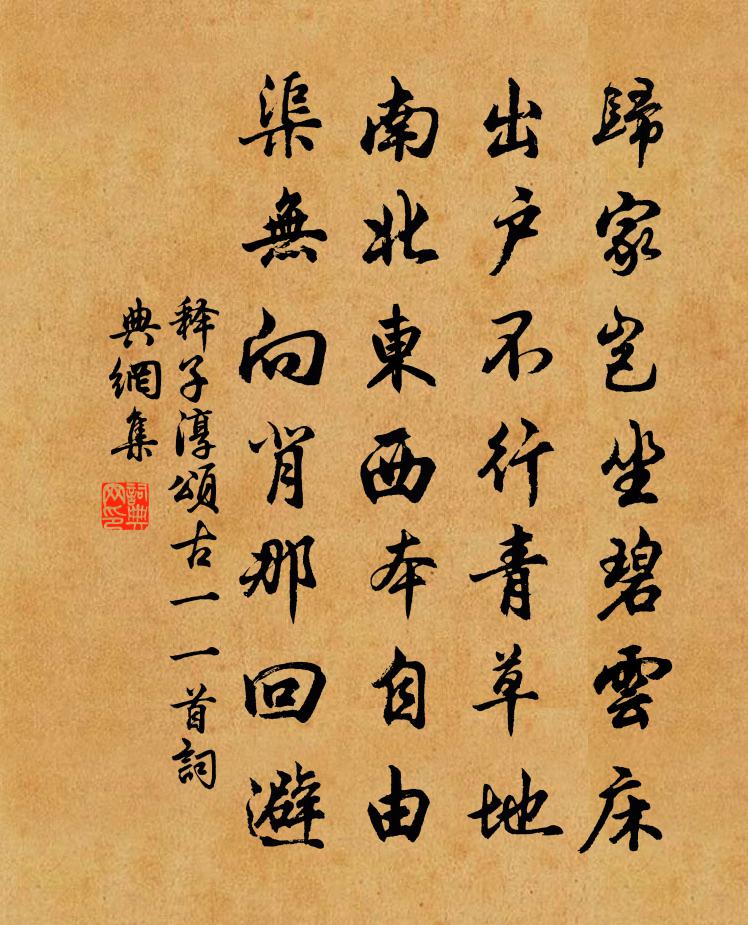 歸家岂坐碧雲床
出户不行青草地
南北東西本自由
渠無向背那回避
释子淳頌古一一首詞
典網集
詞典
网印